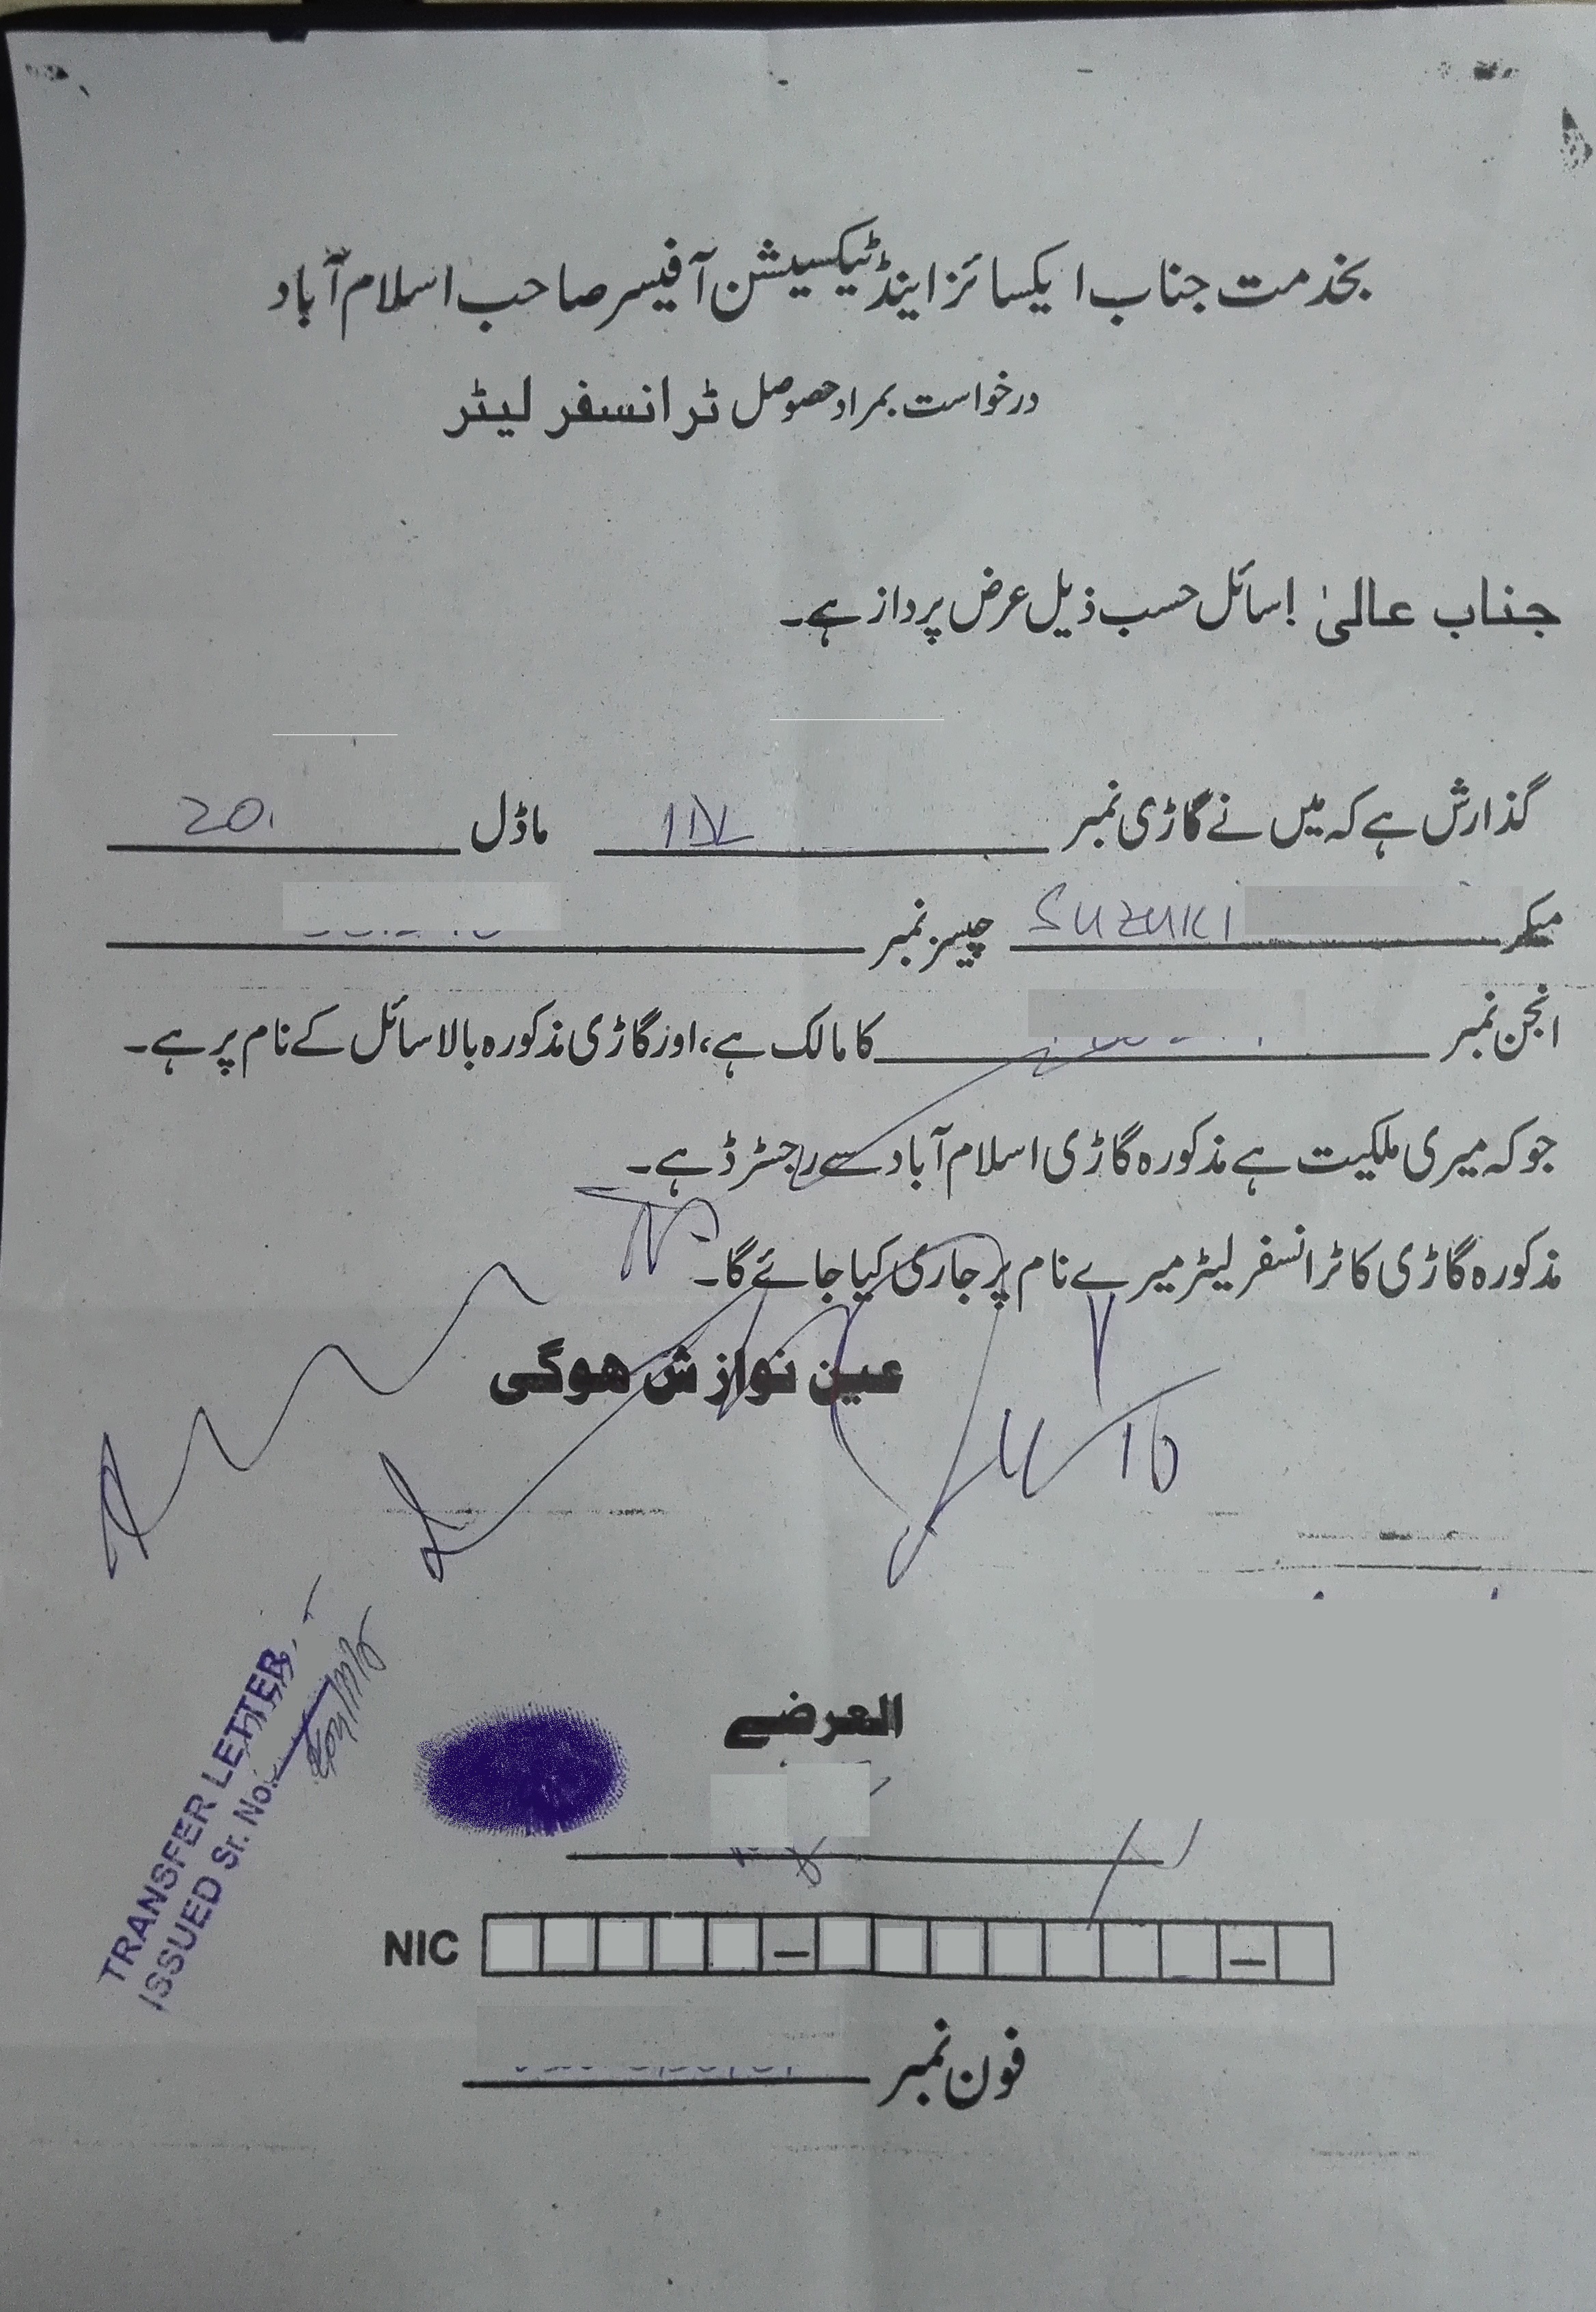 بخدمت جناب ایکسائز اینڈ ٹیکسیشن آفیسر صاحب اسلام آباد
درخواست بمراد حصوصل ٹرانسفر لیٹر
جناب عالیٰ ! سائل حسب ذیل عرض پرداز ہے۔
گذارش ہے کہ میں نے گاڑی نمبر ماڈل 20
میکر SUZUKI چیسز نمبر
انجن نمبر کا مالک ہے، اور گاڑی مذکورہ بالا سائل کے نام پر ہے۔
جو کہ میری ملکیت ہے مذکورہ گاڑی اسلام آباد سے رجسٹرڈ ہے۔
مذکورہ گاڑی کا ٹرانسفر لیٹر میرے نام پر جاری کیا جائے گا۔
عین نوازش ھوگی
TRANSFER LETTER
ISSUED Sr. No.
العرضے
NIC
فون نمبر